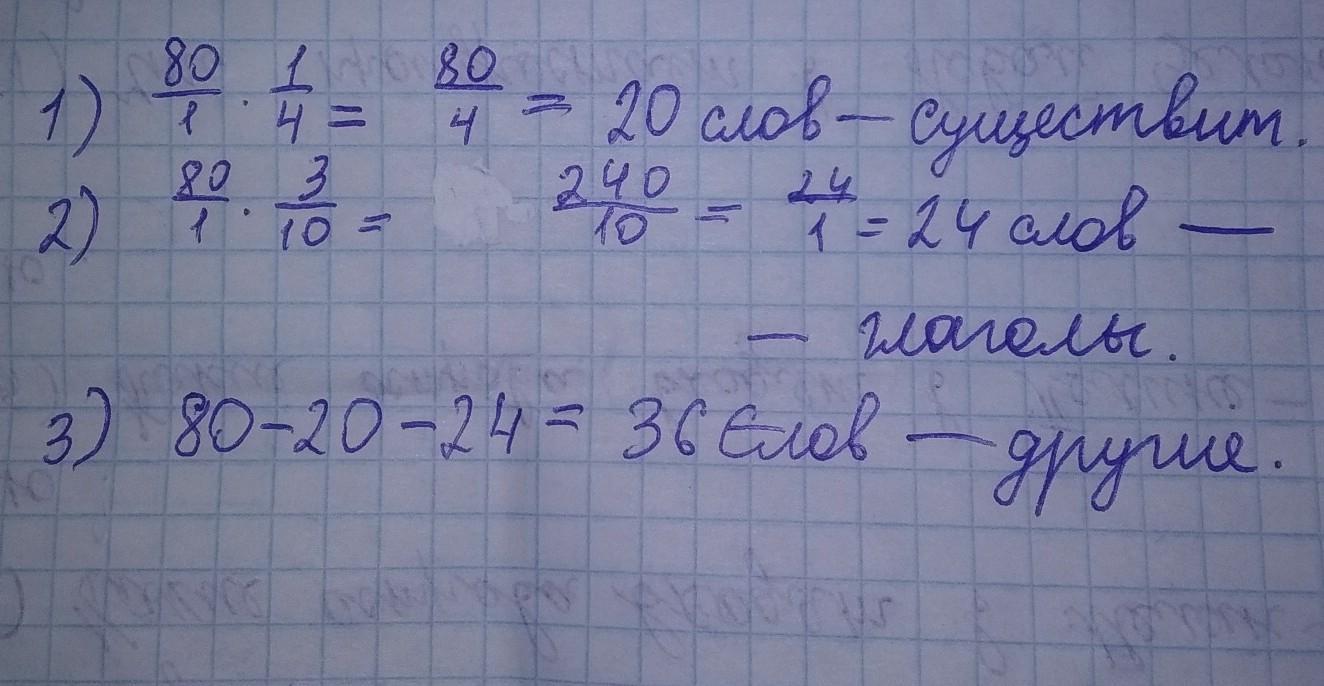 1) 80/1 · 1/4 = 80/4 = 20 слов — существит.
2) 80/1 · 3/10 = 240/10 = 24/1 = 24 слов —
— глаголы.
3) 80-20-24= 36 слов — другие.